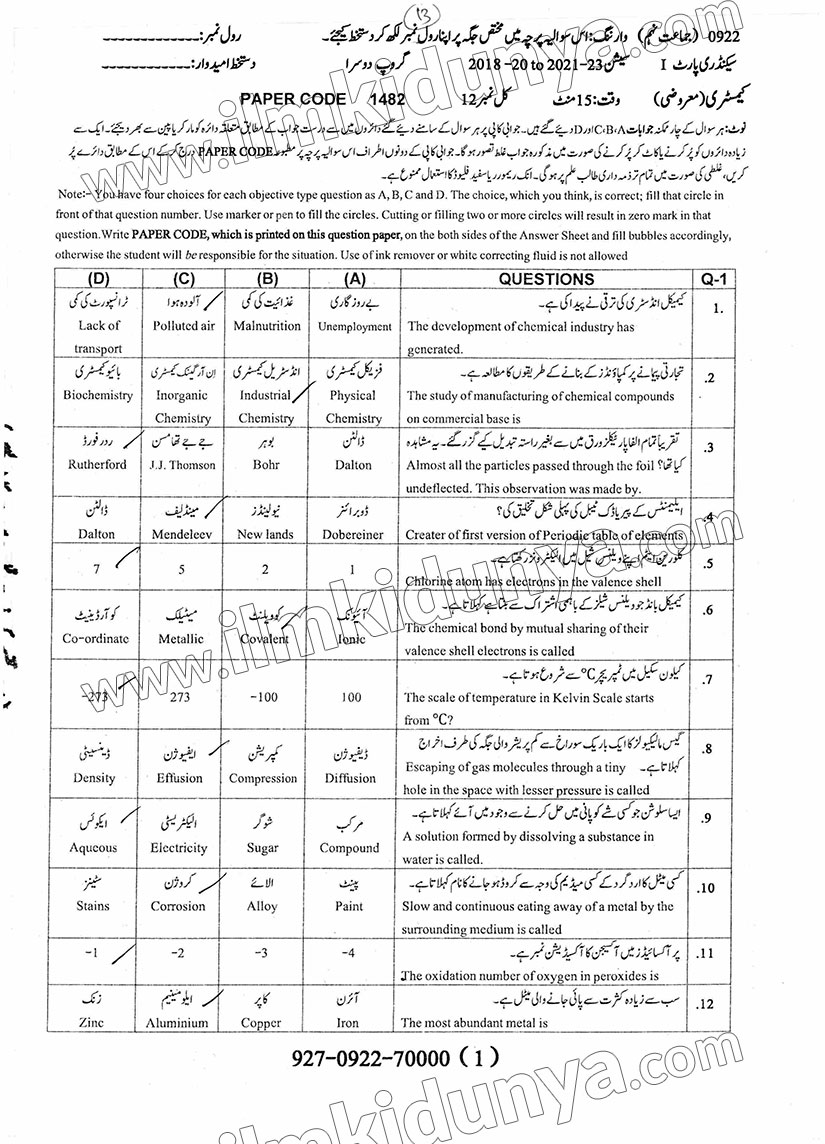 13
0922 (جماعت نہم) وارننگ: اس سوالیہ پرچہ میں مختص جگہ پر اپنا رول نمبر لکھ کر دستخط کیجئے۔ رول نمبر:
سیکنڈری پارٹ I سیشن 2018 -20 to 2021-23 گروپ دوسرا دستخط امیدوار:
کیمسٹری (معروضی) وقت: 15 منٹ کل نمبر 12 PAPER CODE 1482
نوٹ: ہر سوال کے چار ممکنہ جوابات C،B،A اور D دیئے گئے ہیں۔ جوابی کاپی پر ہر سوال کے سامنے دیئے گئے دائروں میں سے درست جواب کے مطابق متعلقہ دائرہ کو مارکر یا پین سے بھر دیجئے۔ ایک سے
زیادہ دائروں کو پُر کرنے یا کاٹ کر پُر کرنے کی صورت میں مذکورہ جواب غلط تصور ہوگا۔ جوابی کاپی کے دونوں اطراف اس سوالیہ پرچہ پر مطبوعہ PAPER CODE درج کر کے اس کے مطابق دائرے پُر
کریں، غلطی کی صورت میں تمام تر ذمہ داری طالب علم پر ہوگی۔ انک ریمور یا سفید فلیوڈ کا استعمال ممنوع ہے۔
Note:- You have four choices for each objective type question as A, B, C and D. The choice, which you think, is correct; fill that circle in
front of that question number. Use marker or pen to fill the circles. Cutting or filling two or more circles will result in zero mark in that
question.Write PAPER CODE, which is printed on this question paper, on the both sides of the Answer Sheet and fill bubbles accordingly,
otherwise the student will be responsible for the situation. Use of ink remover or white correcting fluid is not allowed
(D) (C) (B) (A) QUESTIONS Q-1
ٹرانسپورٹ کی کمی آلودہ ہوا غذائیت کی کمی بے روزگاری کیمیکل انڈسٹری کی ترقی نے پیدا کی ہے۔ 1.
Lack of Polluted air Malnutrition Unemployment The development of chemical industry has
transport generated.
بائیو کیمسٹری ان آرگینک کیمسٹری انڈسٹریل کیمسٹری فزیکل کیمسٹری تجارتی پیمانے پر کمپاؤنڈز کے بنانے کے طریقوں کا مطالعہ ہے۔ .2
Biochemistry Inorganic Industrial Physical The study of manufacturing of chemical compounds
Chemistry Chemistry Chemistry on commercial base is
ردرفورڈ جے جے تھامسن بوہر ڈالٹن تقریباً تمام الفا پارٹیکلز ورق میں سے بغیر راستہ تبدیل کیے گزر گئے۔ یہ مشاہدہ .3
Rutherford J.J. Thomson Bohr Dalton Almost all the particles passed through the foil کیا تھا؟
undeflected. This observation was made by.
ڈالٹن مینڈلیف نیولینڈز ڈوبرائنر ایلیمنٹس کے پیریاڈک ٹیبل کی پہلی شکل تخلیق کی؟ .4
Dalton Mendeleev New lands Dobereiner Creater of first version of Periodic table of elements
7 5 2 1 کلورین ایٹم اپنے ویلنس شیل میں الیکٹرونز رکھتا ہے۔ .5
Chlorine atom has electrons in the valence shell
کوآرڈینیٹ میٹیلک کوویلنٹ آئیونک کیمیکل بانڈ جو ویلنس شیلز کے باہمی اشتراک سے بنتا ہے کہلاتا ہے۔ .6
Co-ordinate Metallic Covalent Ionic The chemical bond by mutual sharing of their
valence shell electrons is called
-273 273 -100 100 کیلون سکیل میں ٹمپریچر °C سے شروع ہوتا ہے۔ .7
The scale of temperature in Kelvin Scale starts
from °C?
ڈینسیٹی ایفیوژن کمپریشن ڈیفیوژن گیس مالیکیولز کا ایک باریک سوراخ سے کم پریشر والی جگہ کی طرف اخراج .8
Density Effusion Compression Diffusion Escaping of gas molecules through a tiny کہلاتا ہے۔
hole in the space with lesser pressure is called
ایکوئس الیکٹریسٹی شوگر مرکب ایسا سلوشن جو کسی شے کو پانی میں حل کرنے سے وجود میں آئے کہلاتا ہے۔ .9
Aqueous Electricity Sugar Compound A solution formed by dissolving a substance in
water is called.
سٹینز کروژن الائے پینٹ کسی میٹل کا ارد گرد کے کسی میڈیم کی وجہ سے کروڈ ہو جانے کا نام کہلاتا ہے۔ .10
Stains Corrosion Alloy Paint Slow and continuous eating away of a metal by the
surrounding medium is called
-1 -2 -3 -4 پر آکسائیڈز میں آکسیجن کا آکسیڈیشن نمبر ہے۔ .11
The oxidation number of oxygen in peroxides is
زنک ایلومینیم کاپر آئرن سب سے زیادہ کثرت سے پائی جانے والی میٹل ہے۔ .12
Zinc Aluminium Copper Iron The most abundant metal is
927-0922-70000 (1)
www.ilmkidunya.com
www.ilmkidunya.com
www.ilmkidunya.com
ilmkidunya.com